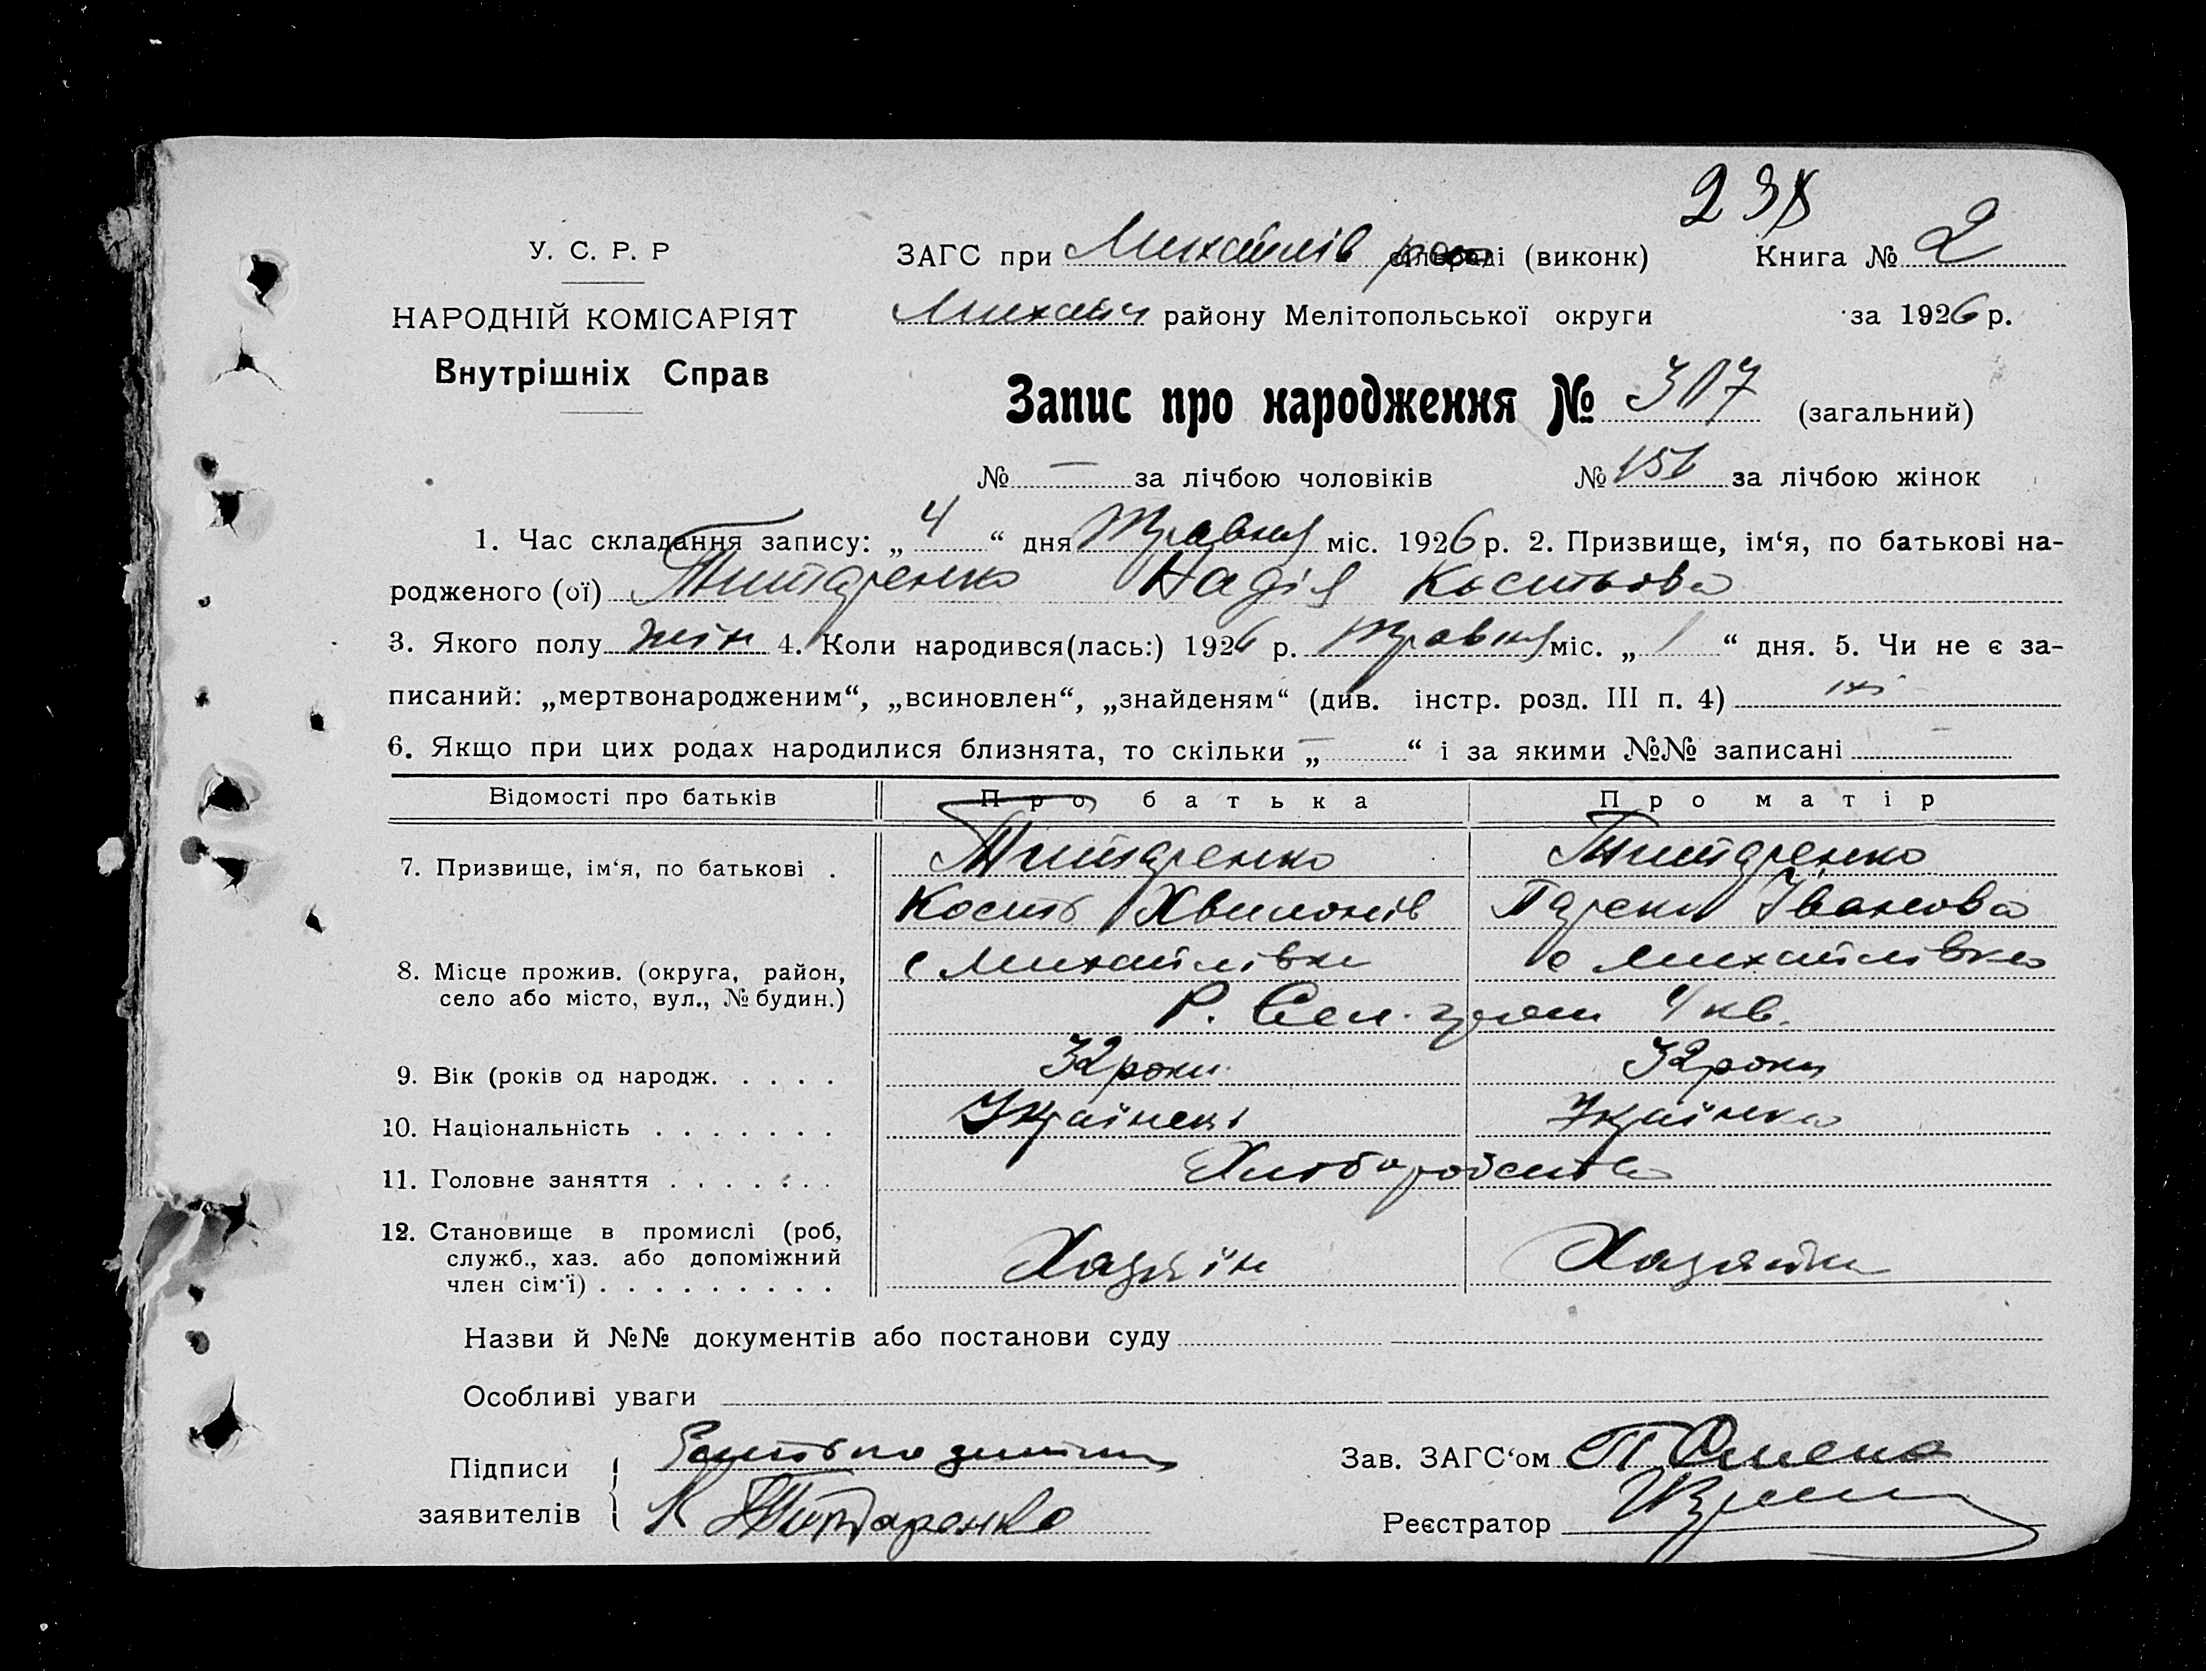 238
У. С. Р. Р
НАРОДНІЙ КОМІСАРІЯТ
Внутрішніх Справ
ЗАГС при Михайлів раді (виконк) Книга № 2
Михайл району Мелітопольської округи за 1926 р.
Запис про народження № 307 (загальний)
№ — за лічбою чоловіків № 151 за лічбою жінок
1. Час складання запису: „ 4 “ дня Травня міс. 1926 р. 2. Призвище, ім‘я, по батькові на-
родженого (ої) Титаренко Надія Костьова
3. Якого полу жін 4. Коли народився(лась:) 1926 р. Травня міс. „ 1 “ дня. 5. Чи не є за-
писаний: „мертвонародженим“, „всиновлен“, „знайденям“ (див. інстр. розд. III п. 4) ні
6. Якщо при цих родах народилися близнята, то скільки „ — “ і за якими №№ записані —
Відомості про батьків Про батька Про матір
7. Призвище, ім‘я, по батькові . Титаренко Титаренко
Кость Хвилонів Іванова
8. Місце прожив. (округа, район, с Михайлівки с Михайлівка
село або місто, вул., № будин.) Р. Сел. 4 кв.
9. Вік (років од народж. . . . . 32 роки 32 роки
10. Національність . . . . . . . Українець Українка
11. Головне заняття . . . . . . . Хліборобство
12. Становище в промислі (роб,
служб., хаз. або допоміжний
член сім‘ї) . . . . . . . . . Хазяїн Хазяйка
Назви й №№ документів або постанови суду
Особливі уваги
Підписи Зав. ЗАГС‘ом
заявителів К Титаренко
Реєстратор